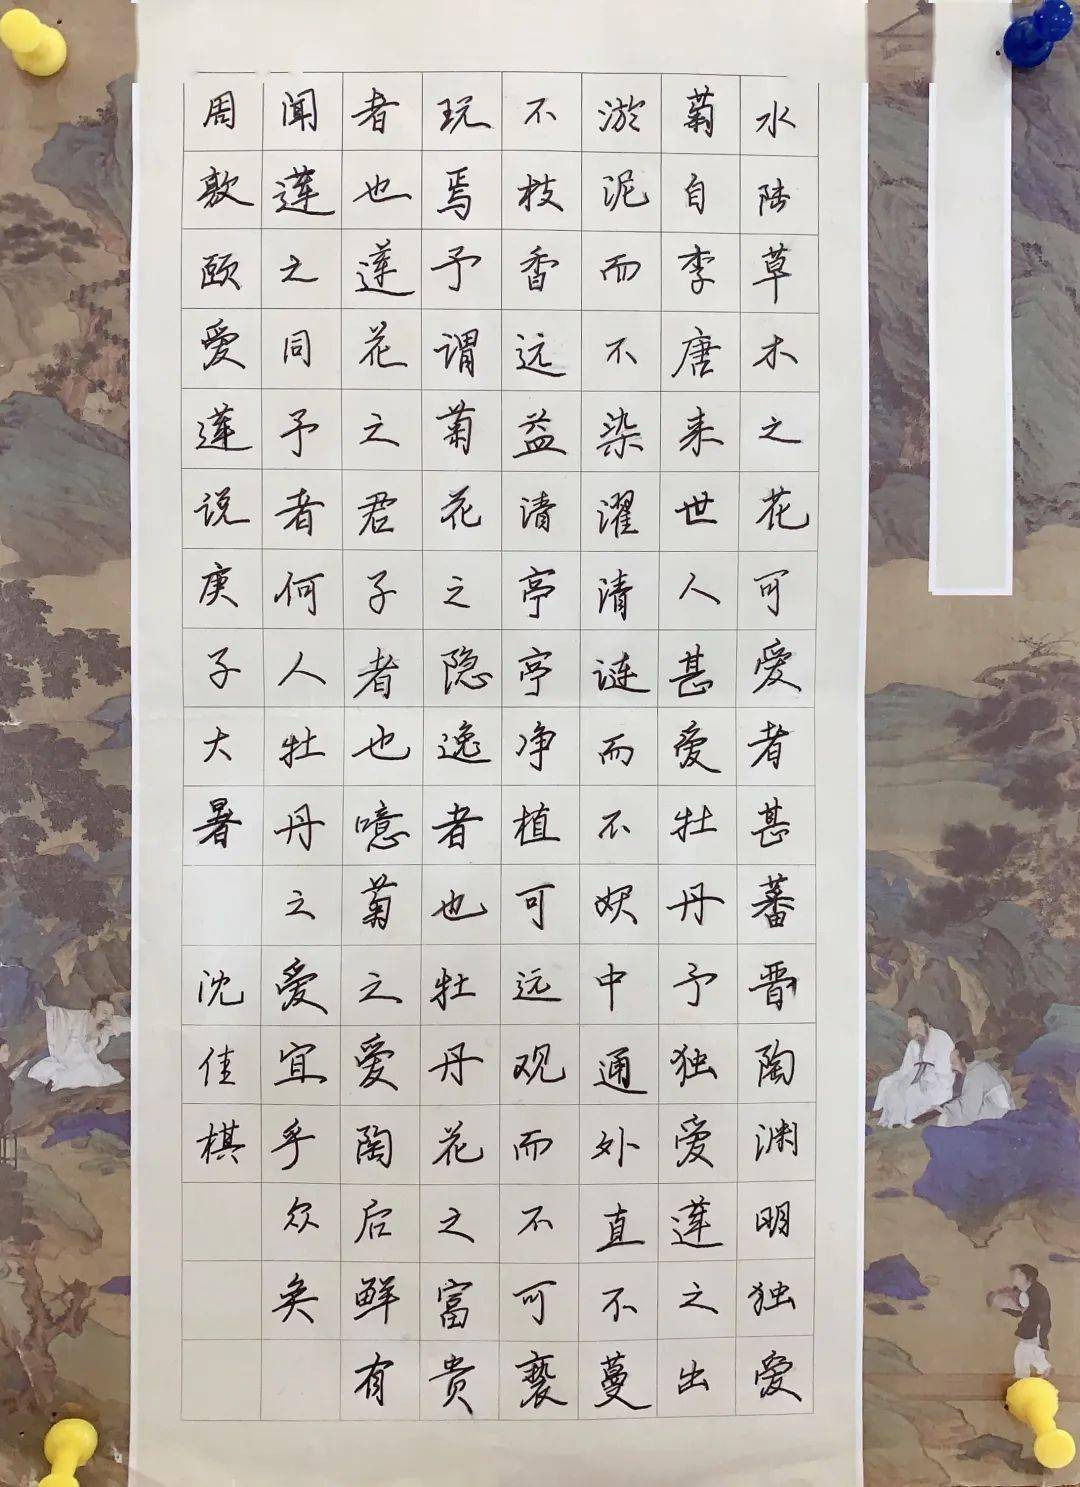 水陆草木之花可爱者甚蕃晋陶渊明独爱
菊自李唐来世人甚爱牡丹予独爱莲之出
淤泥而不染濯清涟而不妖中通外直不蔓
不枝香远益清亭亭净植可远观而不可亵
玩焉予谓菊花之隐逸者也牡丹花之富贵
者也莲花之君子者也噫菊之爱陶后鲜有
闻莲之同予者何人牡丹之爱宜乎众矣
周敦颐爱莲说庚子大暑 沈佳棋